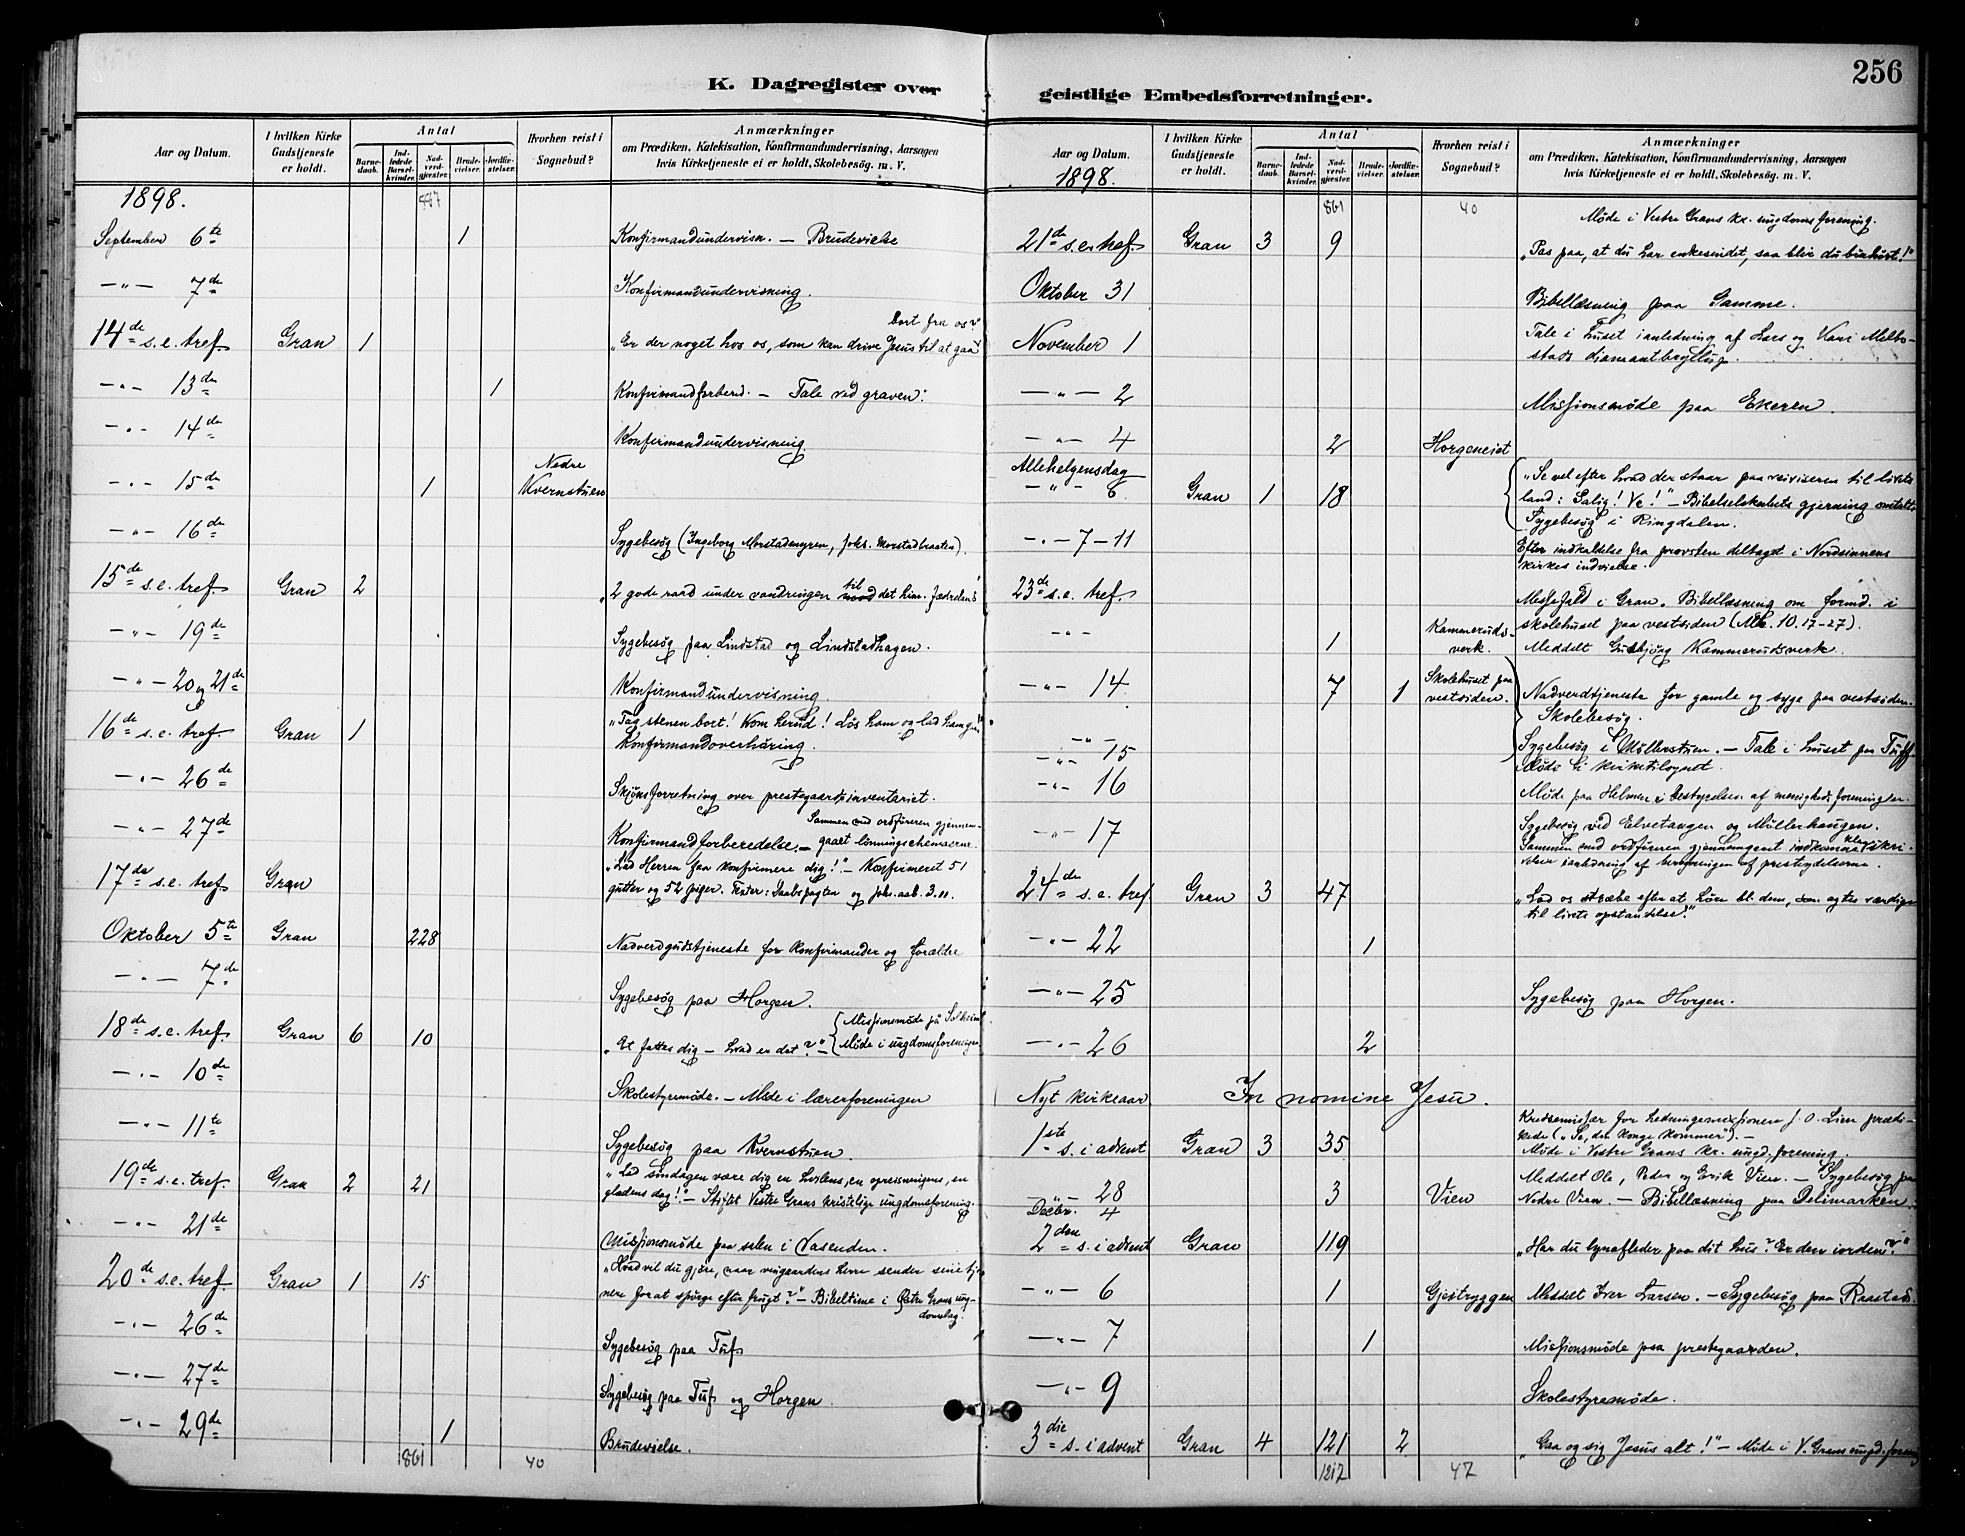 256
K. Dagregister over
Aar og Datum.
I hvilken Kirke Gudstjeneste er holdt.
Antal
Barne-daab.
Ind-ledede Barsel-kvinder.
Nad-verd-gjester.
Brude-vielser.
Jordfæ-stelser.
Hvorhen reist i Sognebud?
Anmærkninger
om Prædiken, Katekisation, Konfirmandundervisning, Aarsagen
hvis Kirketjeneste ei er holdt, Skolebesøg, m. V.
1898. 887
September 6te 1 Konfirmandundervisn. — Brudevielse
—"— 7de Konfirmandundervisning.
bort fra os?"
14de s.e. tref. Gran 1 "Er der noget hos os, som kan drive Jesus til at gaa
—"— 13de 1 Konfirmandforbered. — Tale ved graven:
—"— 14de Konfirmandundervisning
—"— 15de 1 Nedre Kvernstuen
—"— 16de Sygebesøg (Ingeborg Morstadmyren, Johs. Morstadbraaten).
15de s.e. tref. Gran 2 "2 gode raad under vandringen til det him. fædreland"
—"— 19de Sygebesøg paa Lindstad og Lindstadhagen.
—"— 20 og 21de Konfirmandundervisning.
16de s.e. tref. Gran 1 "Tag stenen bort! Kom herud! Løs ham og lad ham gaa!"
Konfirmandoverhøring.
—"— 26de Skjønsforretning over prestegaardsinventariet.
Sammen med ordføreren gjennem-
—"— 27de Konfirmandforberedelse. — gaaet lønningschemaerne.
"Lad Herren faa konfirmere dig!" — Konfirmeret 51
17de s.e. tref. Gran gutter og 52 piger. Texter: Daabspagten og Joh. aab. 3.11.
Oktober 5te Gran 228 Nadverdgudstjeneste for konfirmander og forældre
—"— 7de Sygebesøg paa Horgen.
Missionsmøde på Solheim
18de s.e. tref. Gran 6 10 "Et fattes dig — hvad er det?" — Møde i ungdomsforeningen
—"— 10de Skolestyremøde. — Møde i lærerforeningen
—"— 11te Sygebesøg paa Kvernstuen.
"Lad søndagen være dig en hvilens, en opreisningens, en
19de s.e. tref. Gran 2 21 glædens dag!" — Stiftet Vestre Grans kristelige ungdomsforening.
—"— 21de Missionsmøde paa salen i Vasenden.
"Hvad vil du gjøre, naar vingaardens herre sender sine tje-
20de s.e. tref. Gran 1 15 nere for at spørge efter frugt?" — Bibeltime i Østre Grans ung-
domslag.
—"— 26de Sygebesøg paa Tuf
—"— 27de Sygebesøg paa Tuf og Horgen.
—"— 29de 1 Brudevielse.
861 40
geistlige Embedsforretninger.
Aar og Datum.
I hvilken Kirke Gudstjeneste er holdt.
Antal
Barne-daab.
Ind-ledede Barsel-kvinder.
Nad-verd-gjester.
Brude-vielser.
Jordfæ-stelser.
Hvorhen reist i Sognebud?
Anmærkninger
om Prædiken, Katekisation, Konfirmandundervisning, Aarsagen
hvis Kirketjeneste ei er holdt, Skolebesøg, m. V.
1898. 861 40
Møde i Vestre Grans kr. ungdomsforening.
21de s.e. tref. Gran 3 9 "Pas paa, at du har enkesindet, saa blir du bønhørt!"
Oktober 31 Bibellæsning paa Samme.
November 1 Tale i huset i anledning af Lars og Kari Melbo-
stads diamantbryllup.
—"— 2 Missionsmøde paa Ekeren.
—"— 4 2 Horgeneiet
Allehelgensdag "Se vel efter hvad der staar paa veiviseren til livets
—"— 6 Gran 1 18 land: Salig! Ve!" — Bibelselskabets gjerning omtalt.
Sygebesøg i Ringdalen.
—"— 7–11 Efter indkaldelse fra provsten deltaget i Nordsinnens
kirkes indvielse.
23de s.e. tref. Messefald i Gran. Bibellæsning om formd. i
skolehuset paa vestsiden (Mk. 10. 17–27).
—"— 1 Kammeruds-verk. Meddelt Gudbjørg Kammerudsverk.
—"— 14 7 1 Skolehuset paa vestsiden. Nadverdtjeneste for gamle og syge paa vestsiden.
Skolebesøg.
—"— 15 Sygebesøg i Møllerstuen. — Tale i huset paa Tuff
Møde i kirketilsynet.
—"— 16 Møde paa Helmen i bestyrelsen af menighedsforeningen.
—"— 17 Sygebesøg ved Elvetangen og Møllerhaugen.
Sammen med ordføreren gjennemgaaet indkomne skri-
velser i anledning af beregningen af presteydelserne.
24de s.e. tref. Gran 3 47 "Lad os stræbe efter at høre bl. dem, som agtes værdige
til livets opstandelse."
—"— 22 1
—"— 25 Sygebesøg paa Horgen.
—"— 26 2
Nyt kirkeaar In nomine Jesu.
Kredsemissær for hedningemissionen J. O. Lien prædi-
1ste s. i advent Gran 3 35 kede ("Se, din konge kommer"). —
Møde i Vestre Grans kr. ungd. forening.
—"— 28 3 Vien Meddelt Ole, Peder og Erik Vien. — Sygebesøg paa
Nedre Vien. — Bibellæsning paa Delimarken.
Decbr. 4
2den s. i advent Gran 119 "Har du lynafleder paa dit hus? Er den i orden?"
—"— 6 1 Gjestryggen Meddelt Iver Larsen. — Sygebesøg paa Raastad.
—"— 7 1 Missionsmøde paa prestegaarden.
—"— 9 Skolestyremøde.
3die s. i advent Gran 4 121 2 "Gaa og sig Jesus alt!" — Møde i V. Grans ungd. forening
1217 47